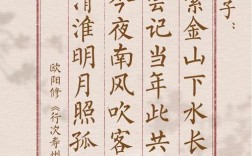 子：
紫金山下水长
尝记当年此共
今夜南风吹客
清淮明月照孤
欧阳修《行次寿州